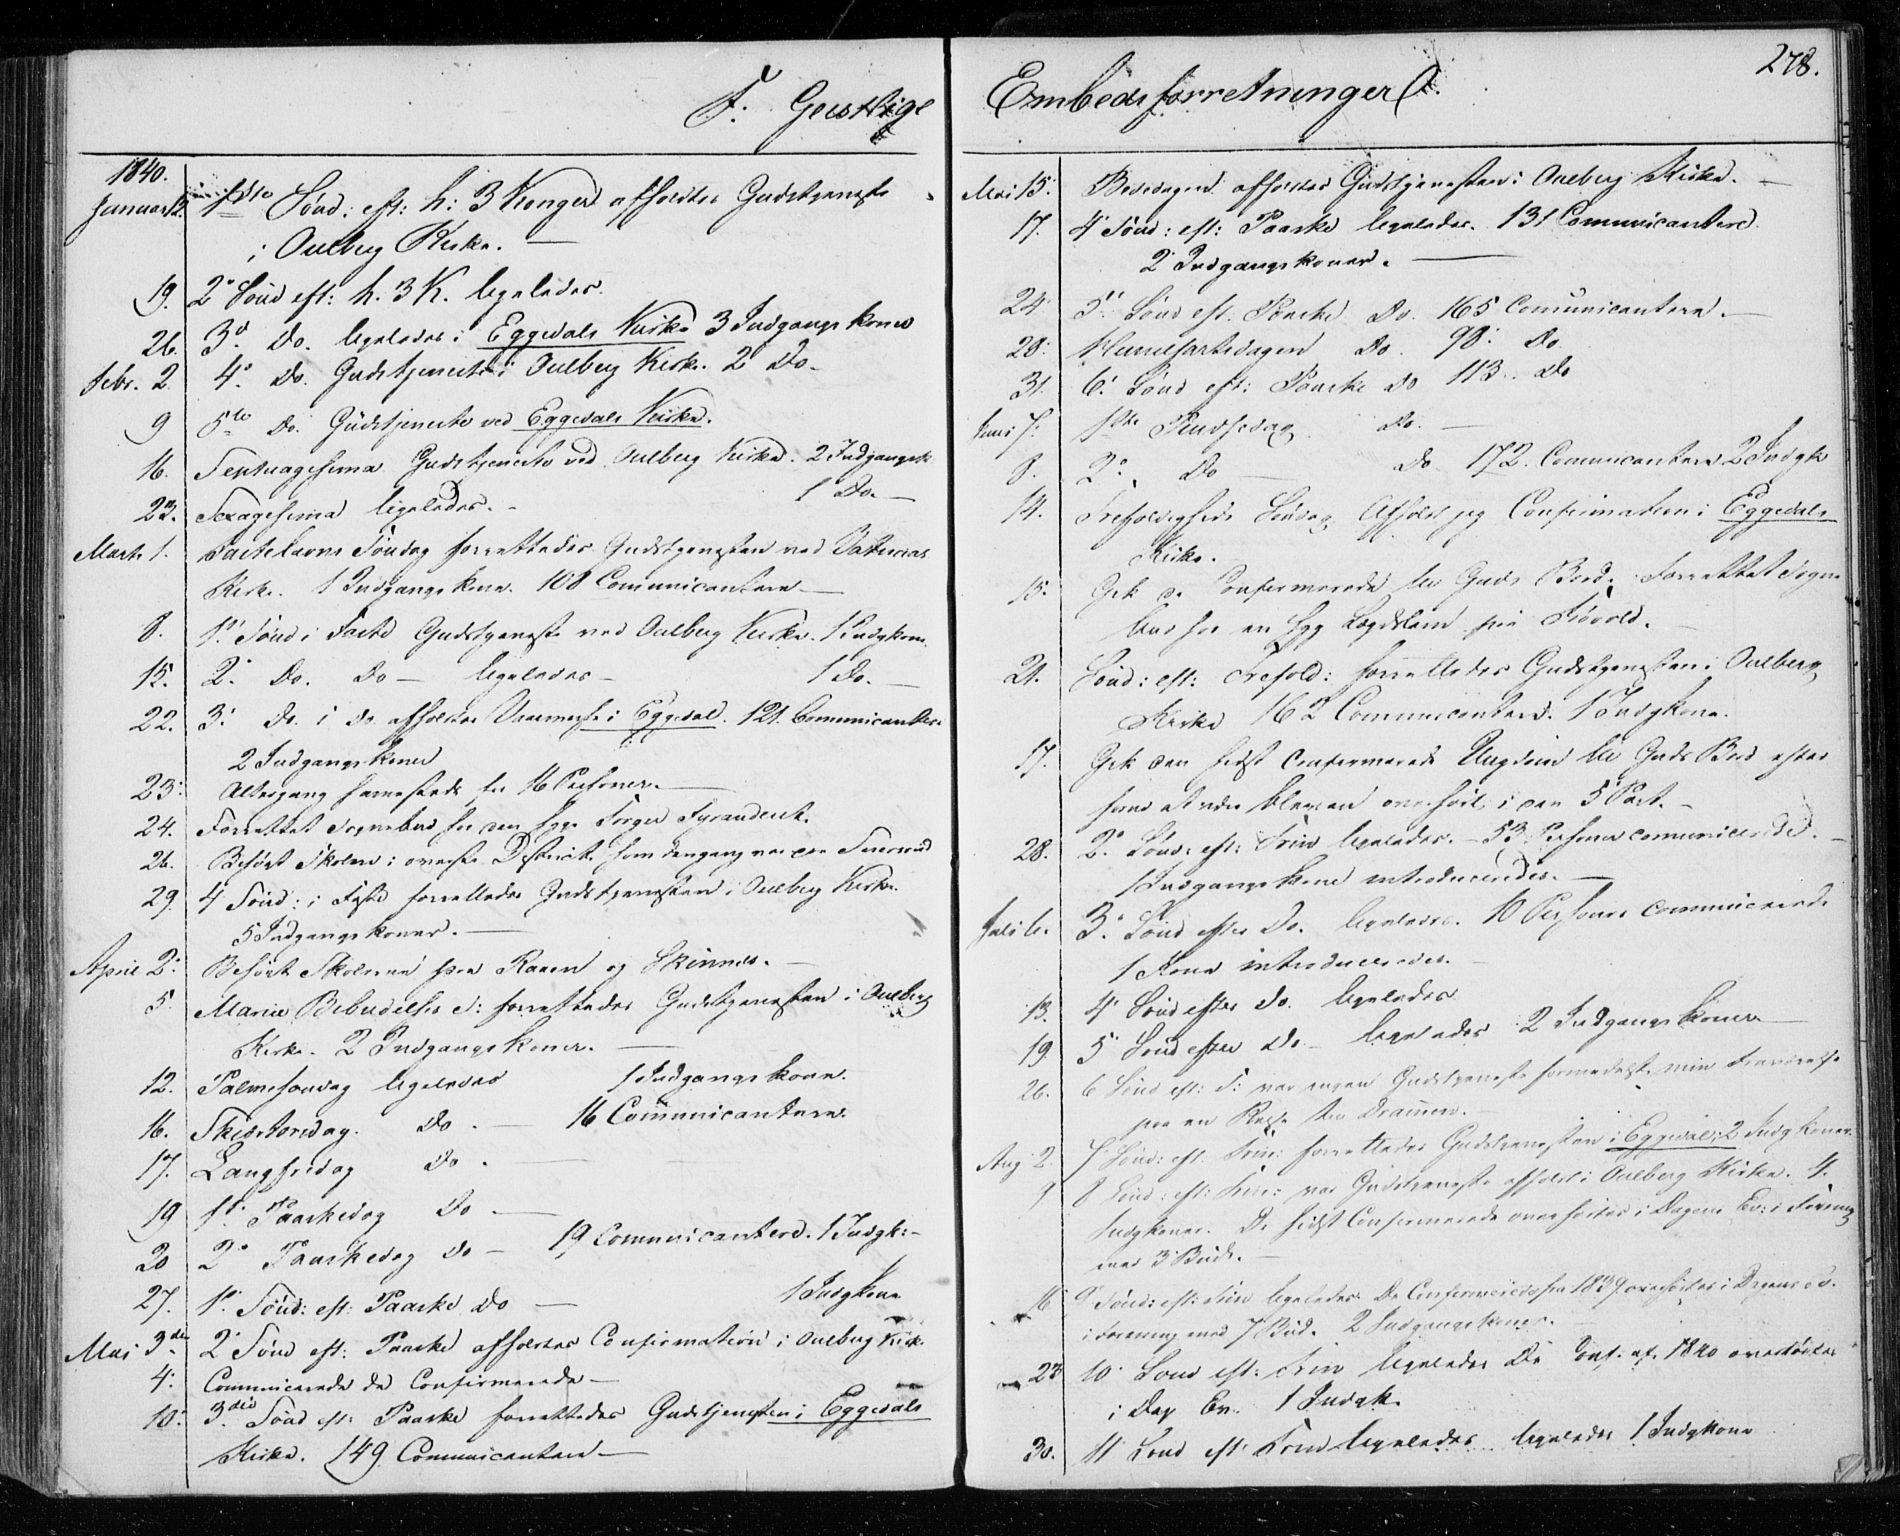 278.
F. Geistlige Embedsforretninger.
1840.
Januar 12. 1ste Sönd: eft: h: 3 Konger afholdtes Gudstjeneste
i Oulberg Kirke. —
19. 2 Sönd eft: h. 3 K. ligeledes.
26. 3 do. ligeledes i Eggedals Kirke 3 Indgangskoner
Febr. 2. 4 Do. Gudstjeneste i Oulberg Kirke. 2 Do.
9 5te Do. Gudstjeneste ved Eggedals Kirke.
16. Septuagesima Gudstjeneste ved Oulberg Kirke. 2 Indgangsk
23. Sexagesima ligeledes. - 1 Do. —
Marts 1. Fastelavns Söndag forrettedes Gudstjenesten ved
Kirke. 1 Indgangskone. 108 Communicantere —
8. 1 Sönd i Faste Gudstjeneste ved Oulberg Kirke. 1 Indgkone.
15. 2. Do. Do — ligeledes — 1 Do. —
22. 3. Do. i do. afholdtes i Eggedal. 121 Communicantere
2 Indgangskoner
23. Altergang sammesteds for 16 Personer. —
24. Forrettet Sognebud hos den syge
26. Besögt Skolen i överste District, som dengang var paa
29. 4 Sönd: i Faste forrettedes Gudstjenesten i Oulberg Kirke.
5 Indgangskoner. —
April 2. Besögt Skolerne paa Raaen og Skinnes. —
5. Mariæ Bebudelses D: forrettedes Gudstjenesten i Oulberg
Kirke. 2 Indgangskoner. —
12. Palmesondag ligeledes 1 Indgangskone.
16. Skiærtorsdag. Do. — 16 Communicantere.
17. Langfredag Do. —
19 1. Paaskedag Do —
20 2 Paaskedag do — 19 Communicantere. 1 Indgk: —
27. 1. Sönd: eft: Paaske do — 1 Indgkone
Mai 3die 2 Sönd eft: Paaske afholdtes Confirmation i Oulberg Kirk.
4. Communicerede de Confirmerede —
10. 3die Sönd eft: Paaske forrettedes Gudstjenesten i Eggedals
Kirke. 149 Communicantere —
Mai 15. Bededagen afholdtes Gudstjenesten i Oulberg Kirke. —
17. 4 Sönd: eft: Paaske ligeledes. 131 Communicantere
2 Indgangskoner. —
24 5 Sönd eft. Paaske Do. 165 Communicantere. —
28. Himelfartsdagen Do. 98. Do.
31. 6. Sönd eft: Paaske do 113. Do
Juni 7. 1ste Pindsedag do. —
8. 2 Do — Do 172. Communicantere 2 Indgk
14. Trefoldigheds Söndag Afholdt jeg Confirmation i Eggedals
Kirke. —
15. Gik de Confirmerede til Guds Bord. Forrettet Sogne
bud hos en syg Lægdslem paa
21. Sönd: eft: Trefold: forrettedes Gudstjenesten i Oulberg
Kirke 162 Communicantere. 1 Indgkone.
17. Gik den sidst Confirmerede Ungdom til Guds Bord efter
forud at være bleven overhört i den 5 Part. —
28. 2. Sönd: eft: Trin ligeledes. — 53 Personer comunicerede. —
1 Indgangskone introduceredes. —
Juli 6. 3. Sönd efter Do. ligeledes. 10 Personer communicerede
1 Kone introduceredes. —
13. 4 Sönd efter do. ligeledes
19 5 Sönd efter Do — ligeledes 2 Indgangskoner —
26. 6 Sönd eft: T: var ingen Gudstjeneste formedelst min Fraværelse
paa en Reise til Drammen. —
Aug 2. 7 Sönd: eft: Trin: forrettedes Gudstjenesten i Eggedal; 2 Indgkoner.
9 8 Sönd: eft: Trin: var Gudstjeneste afholdt i Oulberg Kirke. 4.
Indgkoner. De sidst Confirmerede overhörtes i Dagens Ev: i Forening
med 3 Bud. —
16 9 Sönd: eft: Trin ligeledes. De Confirmerede fra 1839 overhörtes i Dagens Ev.
i Forening med 7 Bud. 2 Indgangskoner. —
23 10 Sönd eft: Trin ligeledes De Conf. af 1840 overhörtes
i Dag Ev. 1 Indgk.
30. 11 Sönd eft Trin ligeledes ligeledes 1 Indgkone